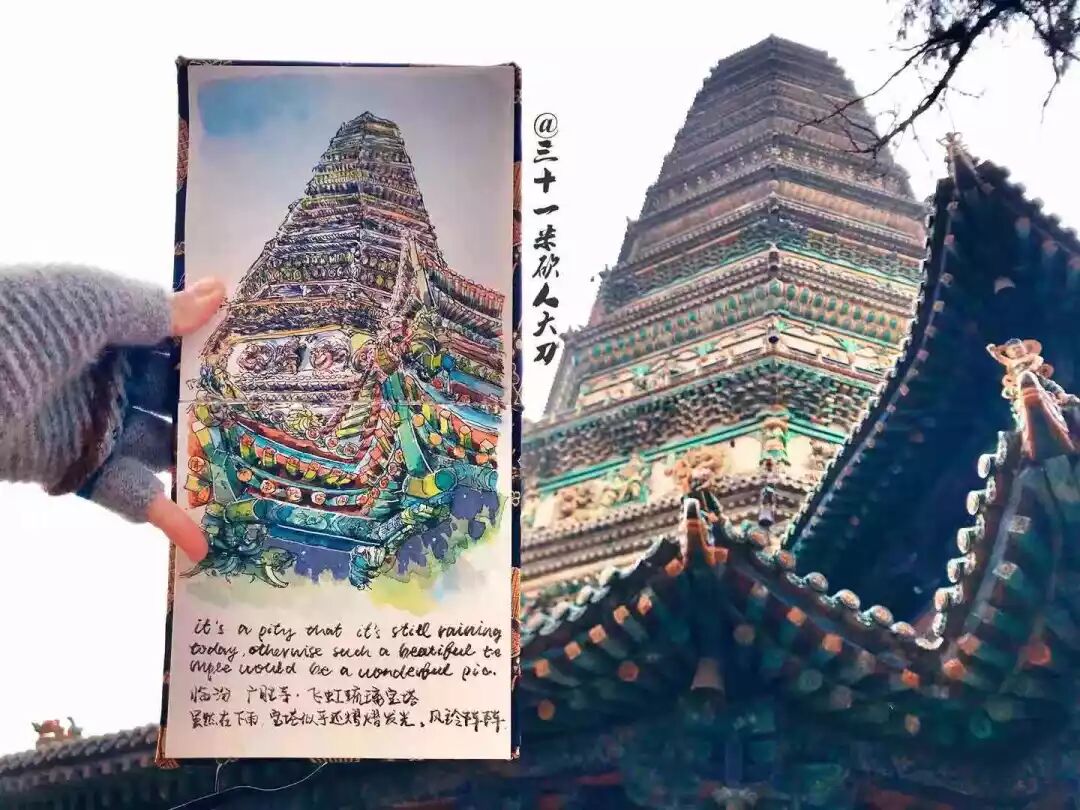 @三十一米砍人大刀
it's a pity that it's still raining
today, otherwise such a beatiful te
mple would be a wonderful pic.
临汾 广胜寺·飞虹琉璃宝塔
虽然在下雨,宝塔似乎还熠熠发光。风铃阵阵